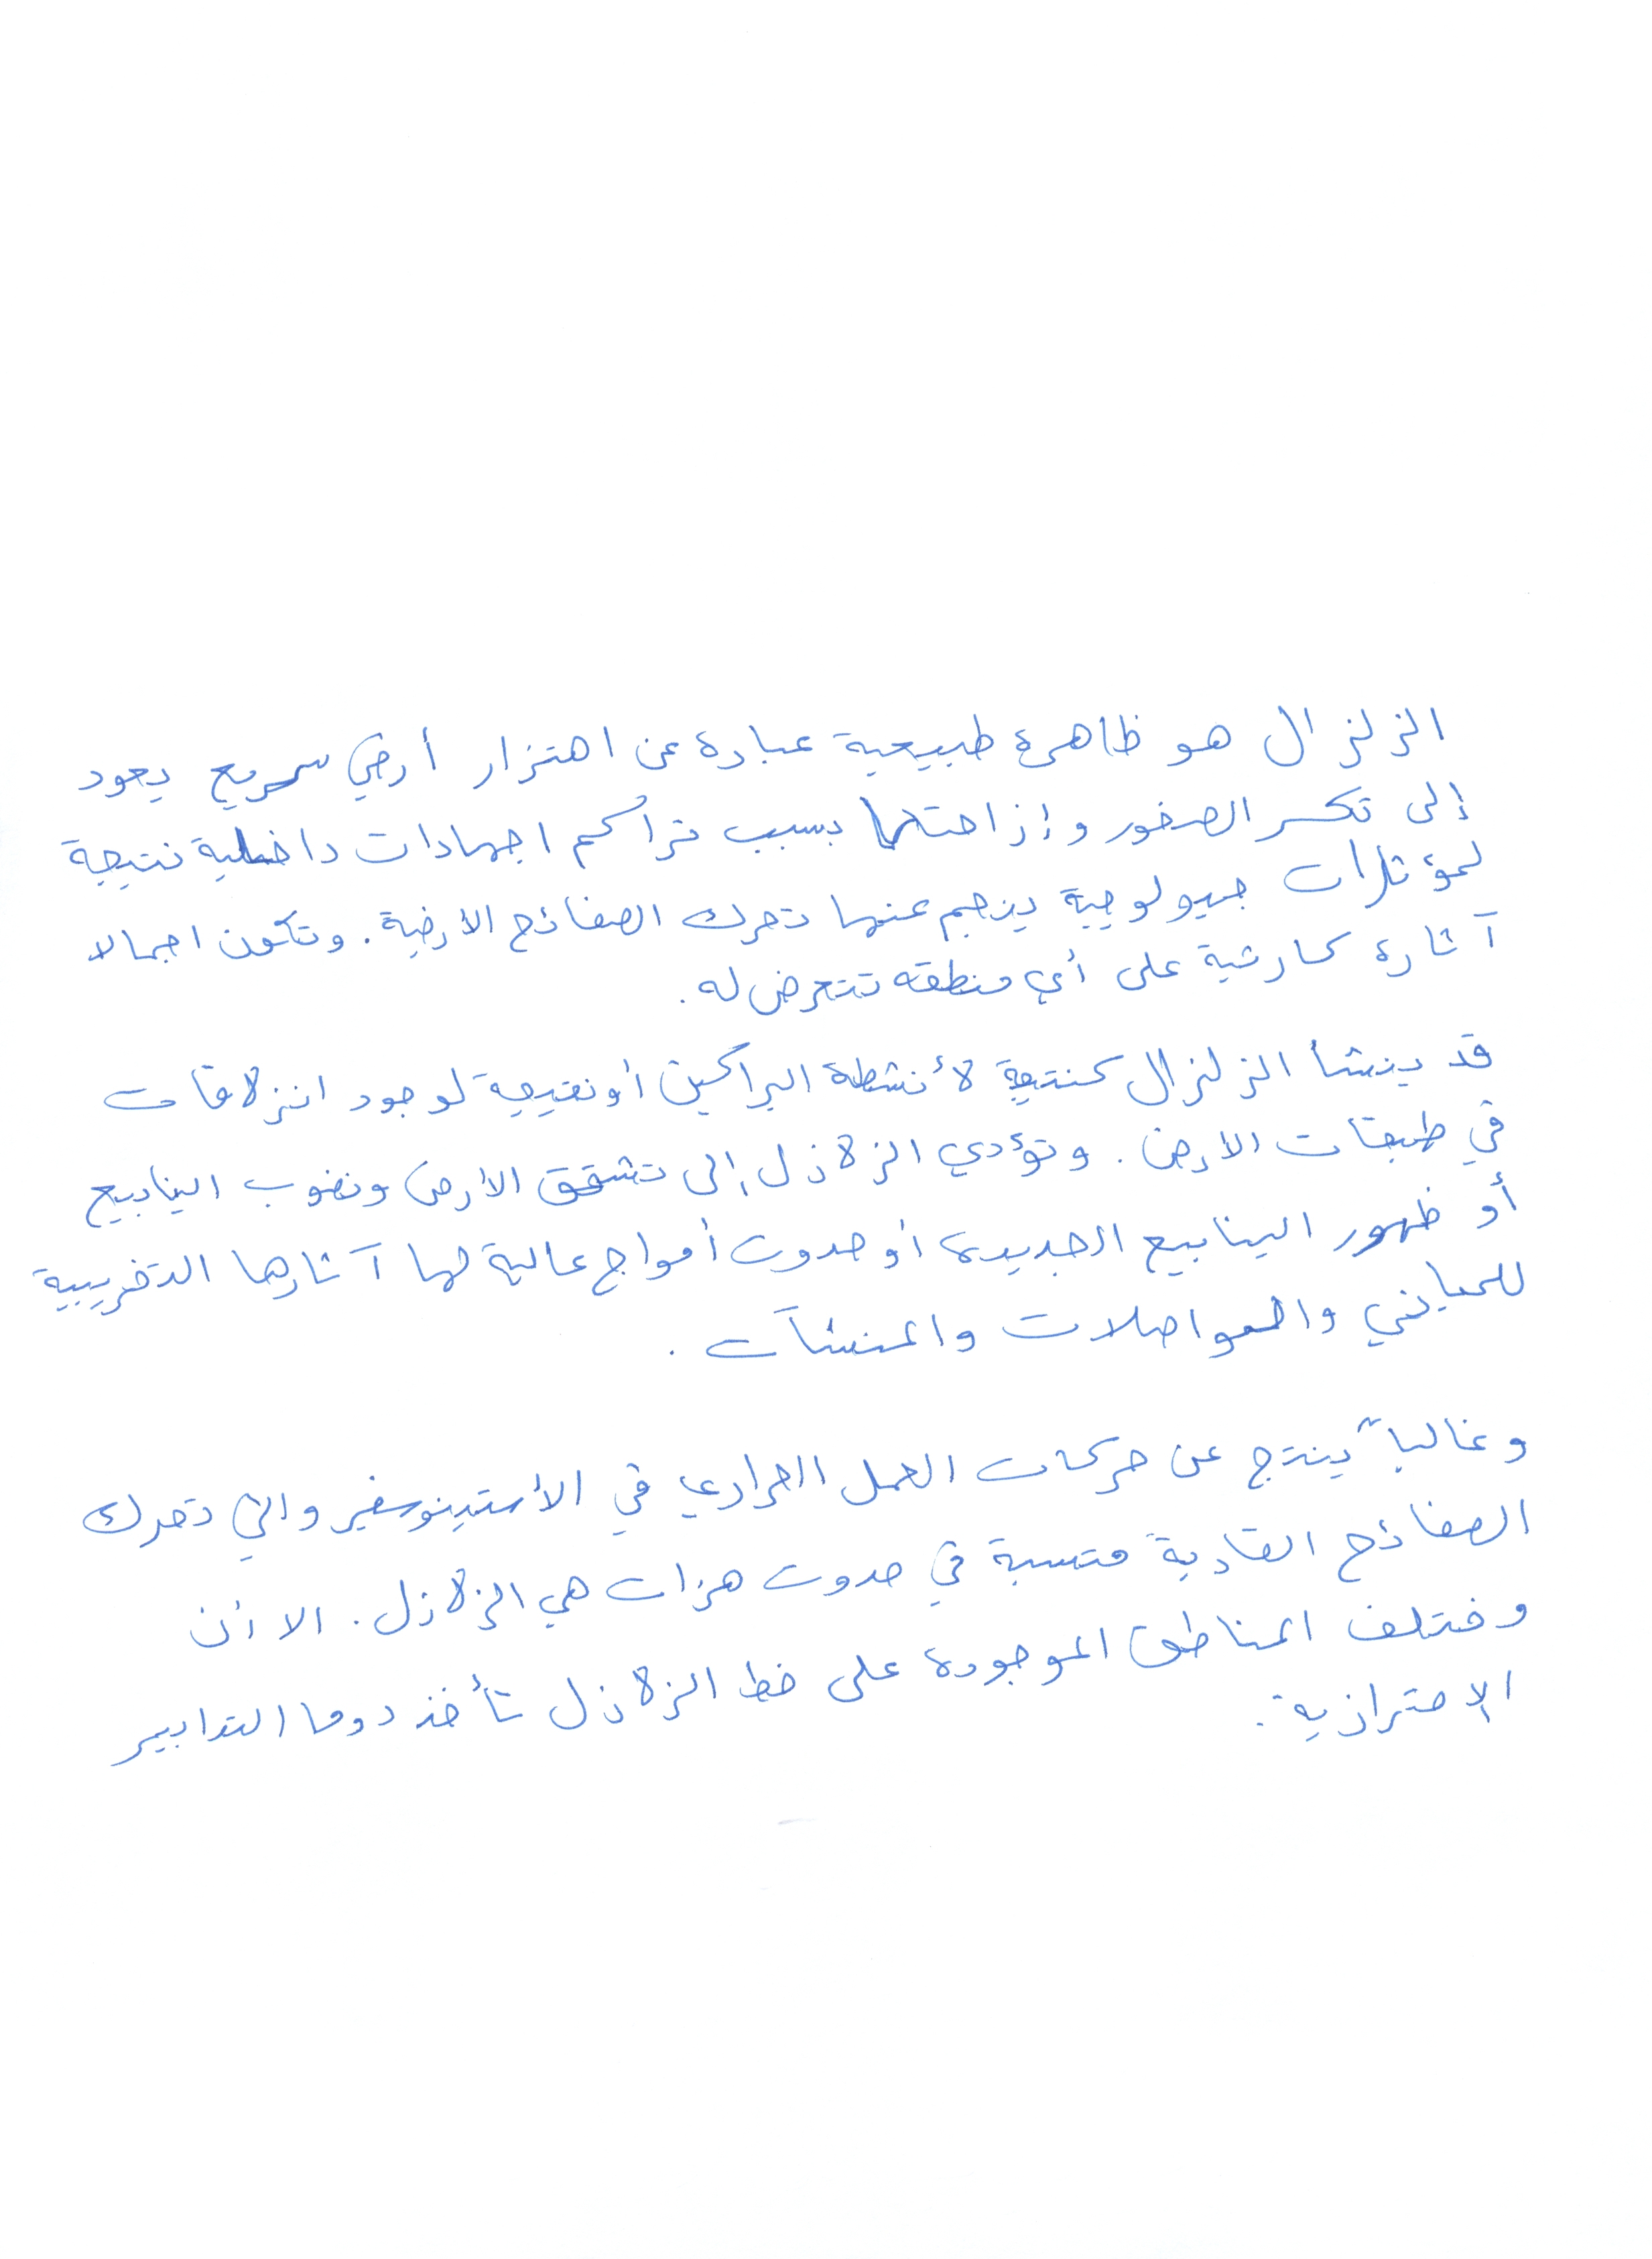 الزلزال هو ظاهرة طبيعية عبارة عن اهتزاز أرضي سريع يعود
إلى تكسر الصخور وإزاحتها بسبب تراكم اجهادات داخلية نتيجة
لمؤثرات جيولوجية ينجم عنها تحرك الصفائح الأرضية. وتكون اجمالا
آثاره كارثية على أي منطقه تتعرض له.
قد ينشأ الزلزال كنتيجة لأنشطة البراكين أو نتيجة لوجود انزلاقات
في طبقات الارض. وتؤدي الزلازل إلى تشقق الأرض ونضوب الينابيع
أو ظهور الينابيع الجديدة أو حدوث أمواج عالية لها آثارها التخريبية
للمباني والمواصلات والمنشآت.
وغالباً ينتج عن حركات الحمل الحراري في الأستينوسفير والتي تحرك
الصفائح القارية متسببة في حدوث هزات هي الزلازل. الا أن
ومختلف المناطق الموجودة على خط الزلازل تأخذ دوما التدابير
الاحترازية.